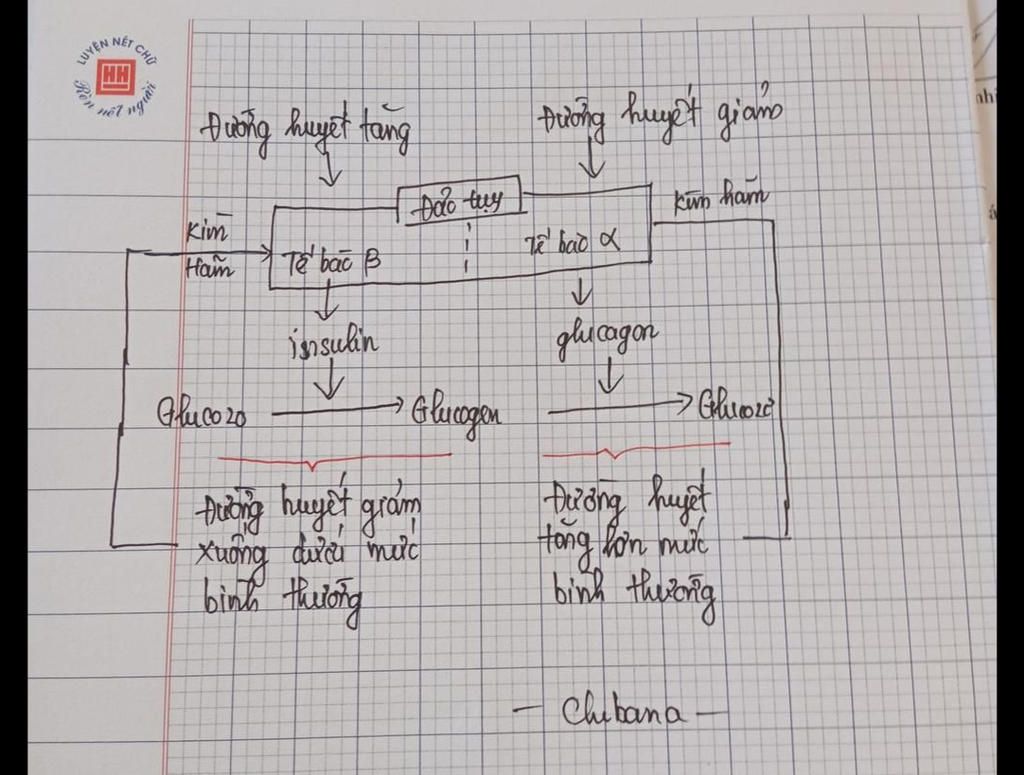 LUYỆN NÉT CHỮ
HH
Rèn nết người
Đường huyết tăng
Đường huyết giảm
Đảo tụy
Kìm
Hãm
Kìm hãm
Tế bào β
Tế bào α
insulin
glucagon
Glucozơ
Glucogen
Glucozơ
Đường huyết giảm
xuống dưới mức
bình thường
Đường huyết
tăng hơn mức
bình thường
- Chibana -